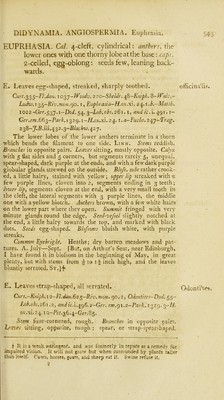 DIDYNAMIA. ANGIOSPERMIA. Euphrasia. 545
EUPHRASIA. Cal. 4-cleft, cylindrical: anthers, the
lower ones with one thorny lobe at the base: caps.
2-celled, egg-oblong: seeds few, leaning back-
wards.
E. Leaves egg-shaped, streaked, sharply toothed. officinalis.
The lower lobes of the lower anthers terminate in a thorn
which binds the filament to one side. LINN. Stems reddish.
Branches in opposite pairs. Leaves sitting, mostly opposite. Calyx
with 5 flat sides and 5 corners, but segments rarely 5, unequal,
spear-shaped, dark purple at the ends, and with a few dark purple
globular glands strewed on the outside. Bloss. tube rather crook-
ed, a little hairy, stained with yellow; upper lip streaked with a
few purple lines, cloven into 2, segments ending in 3 teeth;
lower lip, segments cloven at the end, with a very small tooth in
the cleft, the lateral segments with 3 purple lines, the middle
one with a yellow blotch. Anthers brown, with a few white hairs
on the lower part where they open. Summit fringed with very
minute glands round the edge. Seed-vessel slightly notched at
the end, a little hairy towards the top, and marked with black
dots. Seeds egg-shaped. Blossoms bluish white, with purple
streaks.
Common Eyebright. Heaths; dry barren meadows and pas-
tures. A. July—Sept. [But, on Arthur's Seat, near Edinburgh,
I have found it in blossom in the beginning of May, in great
plenty, but with stems from ½ to 1½ inch high, and the leaves
bluntly serrated. ST.]†
E. Leaves strap-shaped, all serrated. Odontites.
Stem four-cornered, rough. Branches in opposite pairs.
Leaves sitting, opposite, rough: spear, or strap-spear-shaped.
† It is a weak astringent, and was formerly in repute as a remedy for
impaired vision. It will not grow but when surrounded by plants taller
than itself. Cows, horses, goats, and sheep eat it. Swine refuse it.